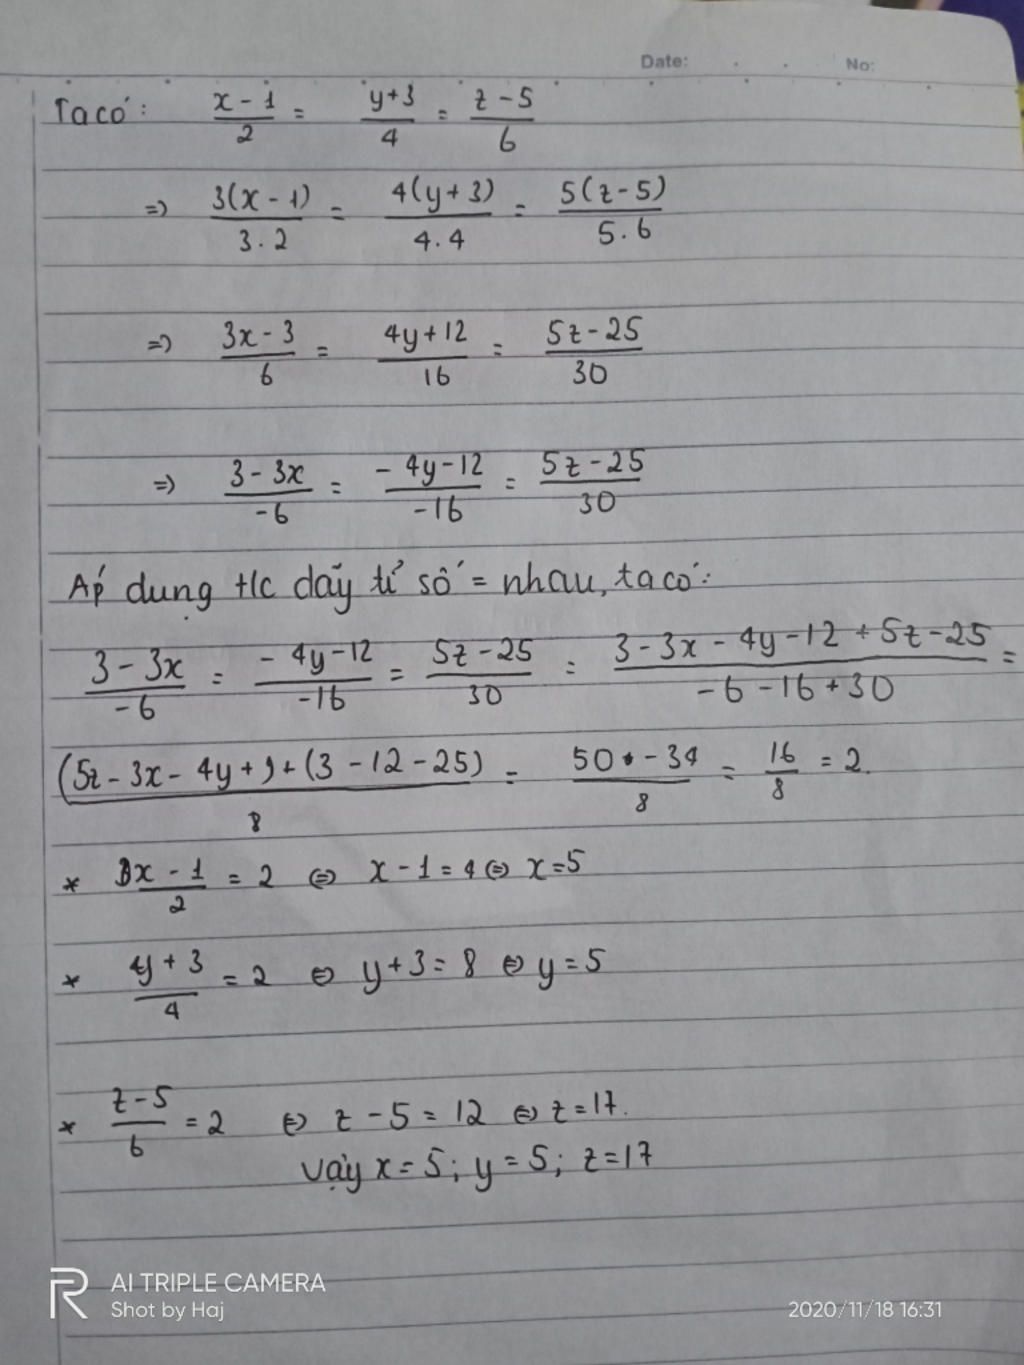 Date: No:
Ta có: x - 1 / 2 = y+3 / 4 = z - 5 / 6
=) 3(x - 1) / 3.2 = 4(y+3) / 4.4 = 5(z-5) / 5.6
=) 3x - 3 / 6 = 4y+12 / 16 = 5z-25 / 30
=) 3 - 3x / -6 = - 4y-12 / -16 = 5z-25 / 30
Áp dụng t/c dãy tỉ số = nhau, ta có:
3 - 3x / -6 = - 4y-12 / -16 = 5z-25 / 30 = 3 - 3x - 4y - 12 + 5z - 25 / -6 - 16 + 30 =
(5z - 3x - 4y + ) + (3 - 12 - 25) / 8 = 50 - 34 / 8 = 16 / 8 = 2.
* x - 1 / 2 = 2 <=> x - 1 = 4 <=> x = 5
* y + 3 / 4 = 2 <=> y + 3 = 8 <=> y = 5
* z - 5 / 6 = 2 <=> z - 5 = 12 <=> z = 17.
Vậy x = 5; y = 5; z = 17
AI TRIPLE CAMERA
Shot by Haj
2020/11/18 16:31